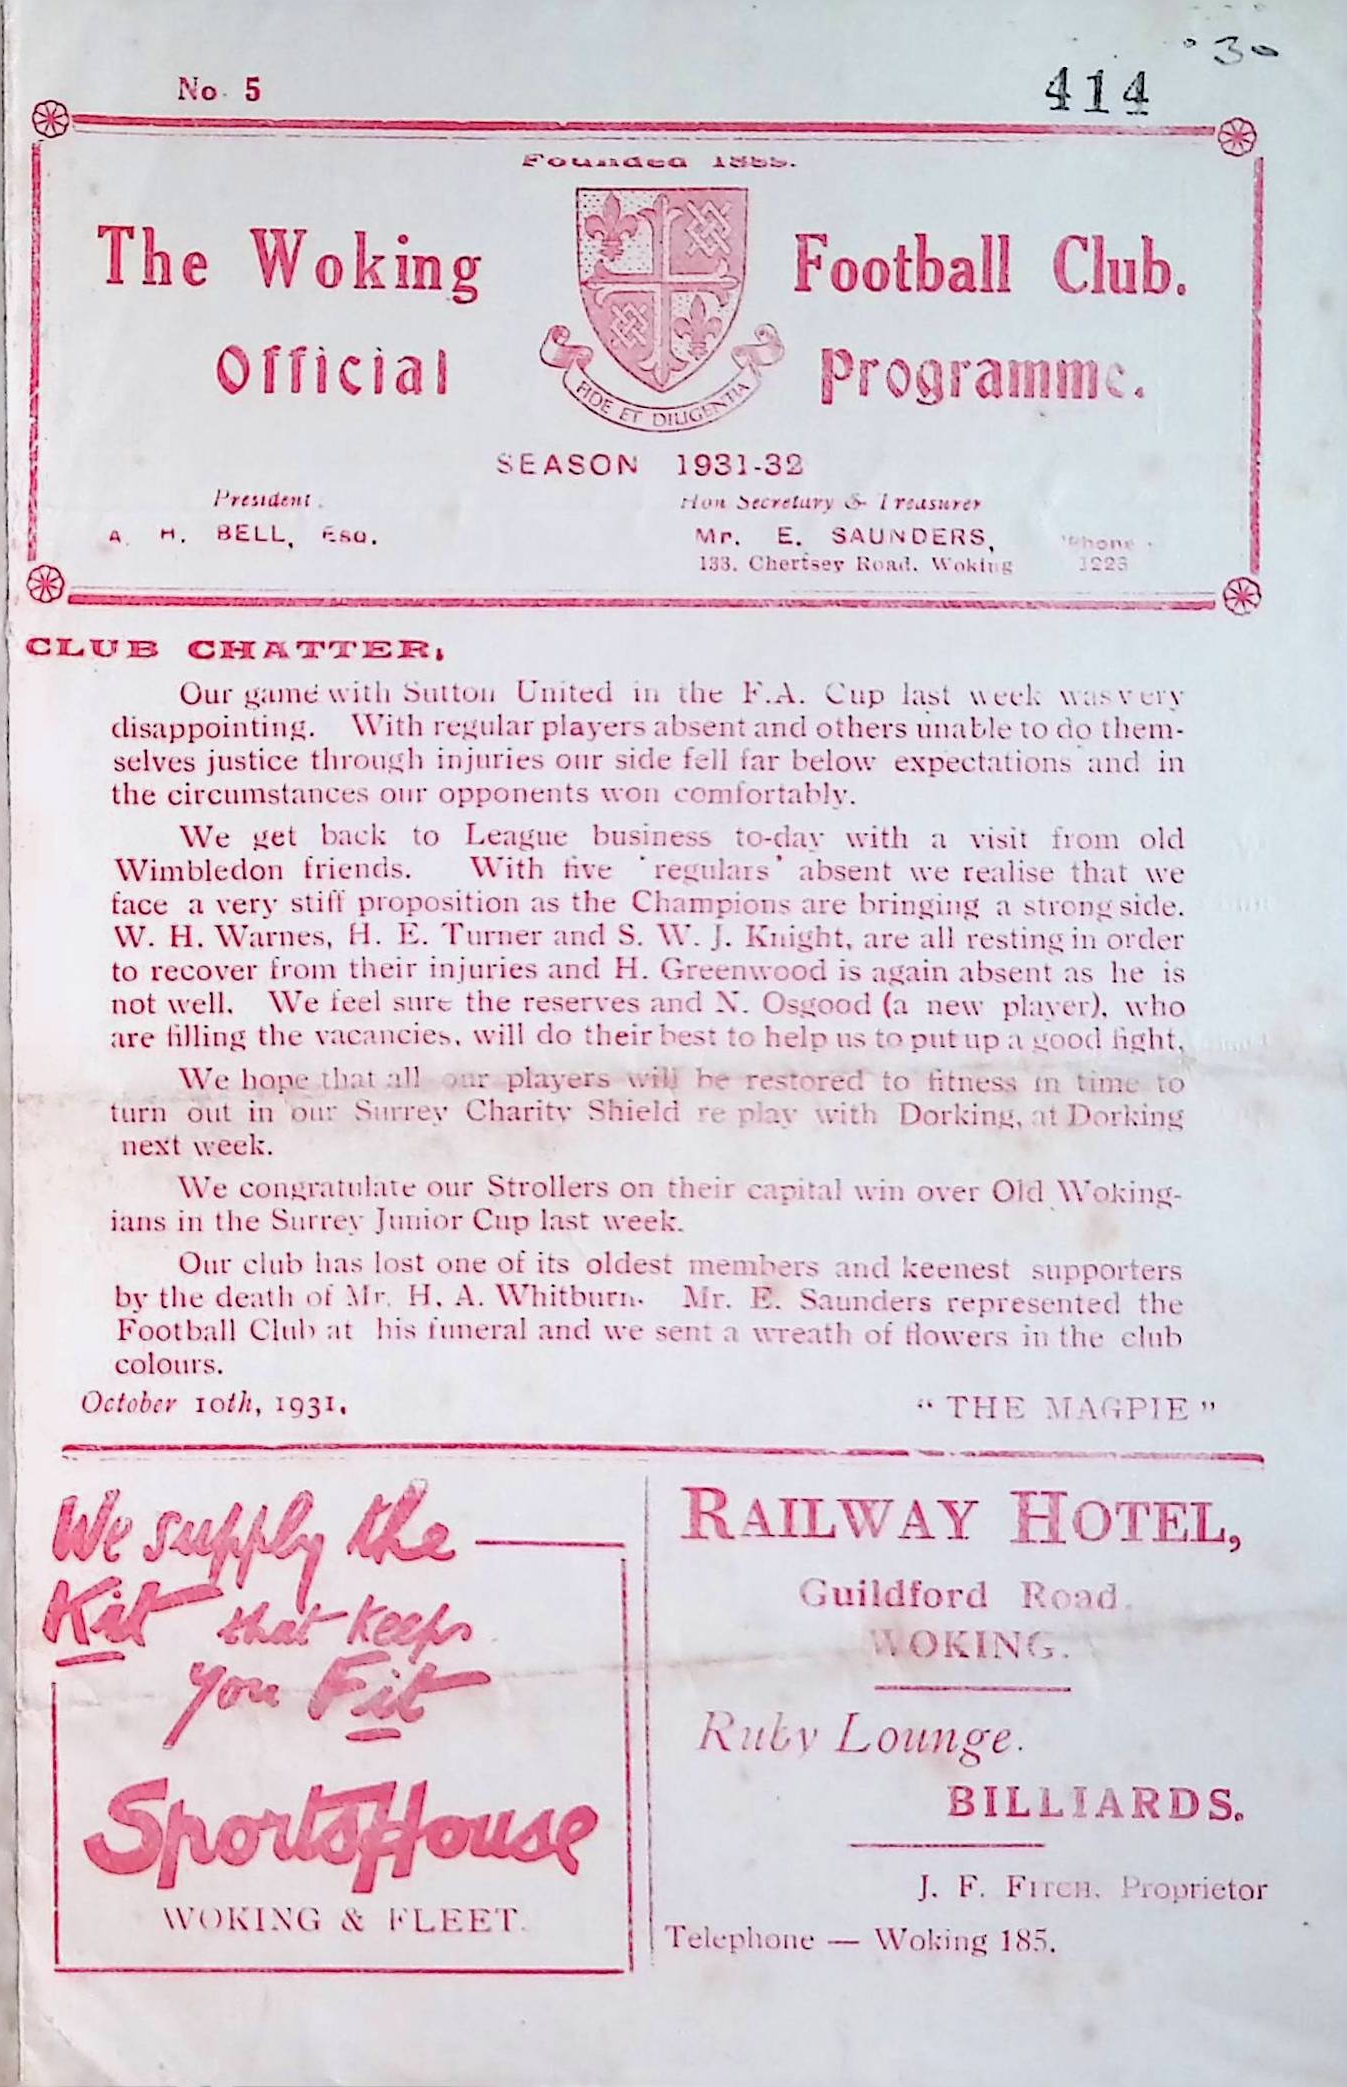 30
No. 5
414
Founded 1889.
The Woking Football Club.
Official Programme.
FIDE ET DILIGENTIA
SEASON 1931-32
President. Hon Secretary & Treasurer
A. H. BELL, Esq. Mr. E. SAUNDERS, 'Phone -
133, Chertsey Road, Woking 1223
CLUB CHATTER.
Our game with Sutton United in the F.A. Cup last week was very
disappointing. With regular players absent and others unable to do them-
selves justice through injuries our side fell far below expectations and in
the circumstances our opponents won comfortably.
We get back to League business to-day with a visit from old
Wimbledon friends. With five 'regulars' absent we realise that we
face a very stiff proposition as the Champions are bringing a strong side.
W. H. Warnes, H. E. Turner and S. W. J. Knight, are all resting in order
to recover from their injuries and H. Greenwood is again absent as he is
not well. We feel sure the reserves and N. Osgood (a new player), who
are filling the vacancies, will do their best to help us to put up a good fight.
We hope that all our players will be restored to fitness in time to
turn out in our Surrey Charity Shield re play with Dorking, at Dorking
next week.
We congratulate our Strollers on their capital win over Old Woking-
ians in the Surrey Junior Cup last week.
Our club has lost one of its oldest members and keenest supporters
by the death of Mr. H. A. Whitburn. Mr. E. Saunders represented the
Football Club at his funeral and we sent a wreath of flowers in the club
colours.
October 10th, 1931. "THE MAGPIE"
We supply the
Kit that keeps
you Fit
SportsHouse
WOKING & FLEET.
RAILWAY HOTEL,
Guildford Road,
WOKING.
Ruby Lounge.
BILLIARDS.
J. F. FITCH, Proprietor
Telephone — Woking 185.